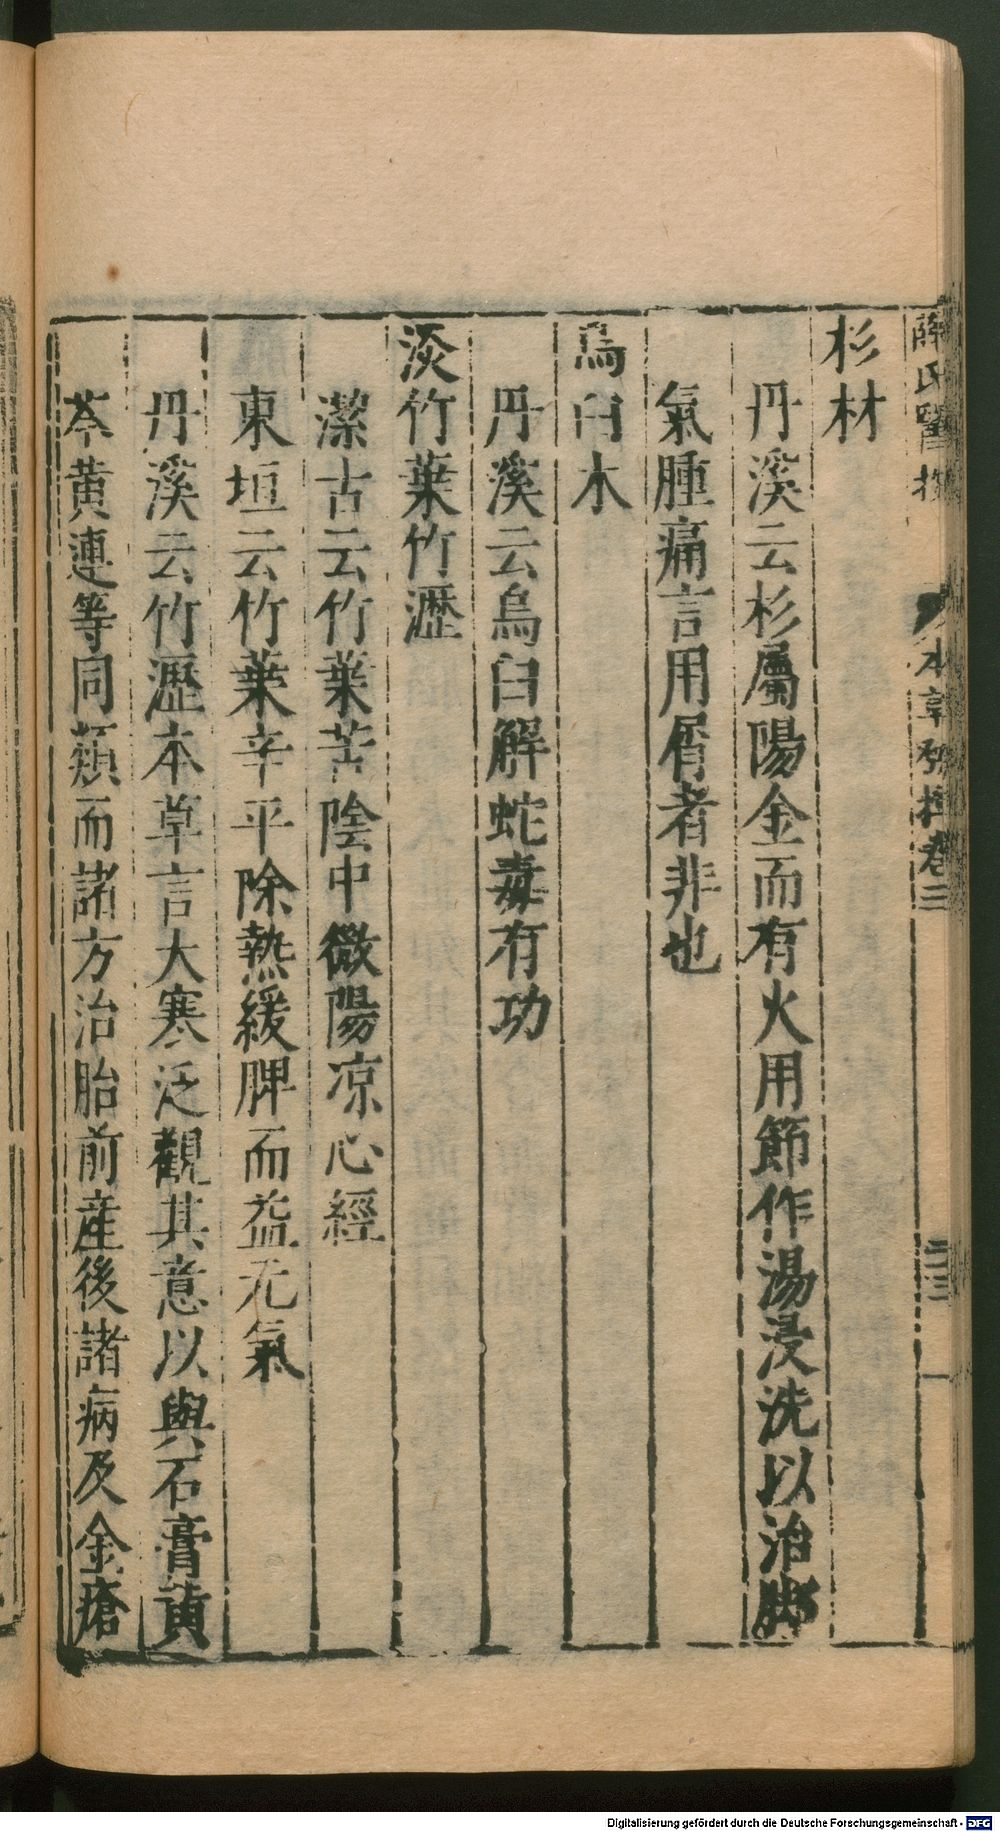 杉材
丹溪云杉屬陽金而有火用節作湯浸洗以治脚
氣腫痛言用屑者非也
烏臼木
丹溪云烏臼解蛇毒有功
淡竹葉竹瀝
潔古云竹葉苦陰中微陽凉心經
東垣云竹葉辛平除熱緩脾而益元氣
丹溪云竹瀝本草言大寒泛觀其意以與石膏黃
芩黃連等同類而諸方治胎前産後諸病及金瘡
薛氏醫按 本草發揮卷三 二三
Digitalisierung gefördert durch die Deutsche Forschungsgemeinschaft - DFG